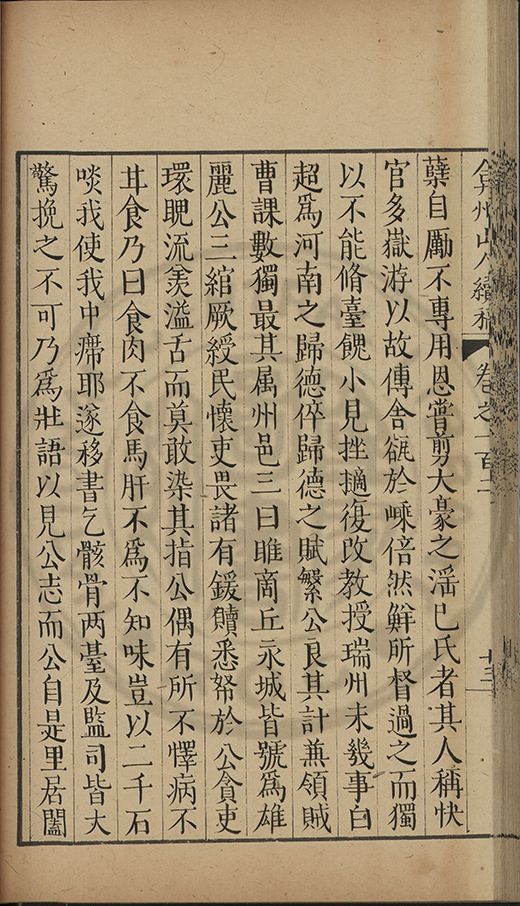 弇州山人續稿 卷之一百二 十三
蘖自勵不專用恩嘗剪大豪之滛巳氏者其人稱快
官多嶽游以故傳舍於嵊倍然鮮所督過之而獨
以不能脩臺餽小見挫擿復改教授瑞州未幾事白
超爲河南之歸德倅歸德之賦繁公良其計兼領賊
曹課數獨最其属州邑三曰睢啇丘永城皆號爲雄
麗公三綰厥綬民懷吏畏諸有鍰贖悉帑於公貪吏
環睨流羡溢舌而莫敢染其指公偶有所不懌病不
甘食乃曰食肉不食馬肝不爲不知味豈以二千石
啖我使我中耶遂移書乞骸骨两臺及監司皆大
驚挽之不可乃爲壯語以見公志而公自是里居闔